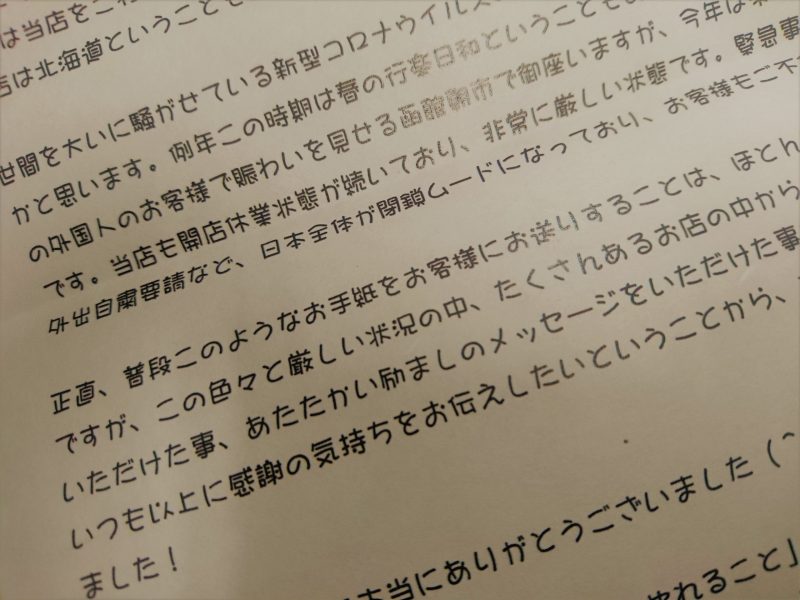 は当店をご
店は北海道ということも
世間を大いに騒がせている新型コロナウイルス
かと思います。例年この時期は春の行楽日和ということも
の外国人のお客様で賑わいを見せる函館朝市で御座いますが、今年は
です。当店も開店休業状態が続いており、非常に厳しい状態です。緊急事
外出自粛要請など、日本全体が閉鎖ムードになっており、お客様もご不
正直、普段このようなお手紙をお客様にお送りすることは、ほとん
ですが、この色々と厳しい状況の中、たくさんあるお店の中から
いただけた事、あたたかい励ましのメッセージをいただけた事
いつも以上に感謝の気持ちをお伝えしたいということから、
ました！
本当にありがとうございました（＾
やれること」